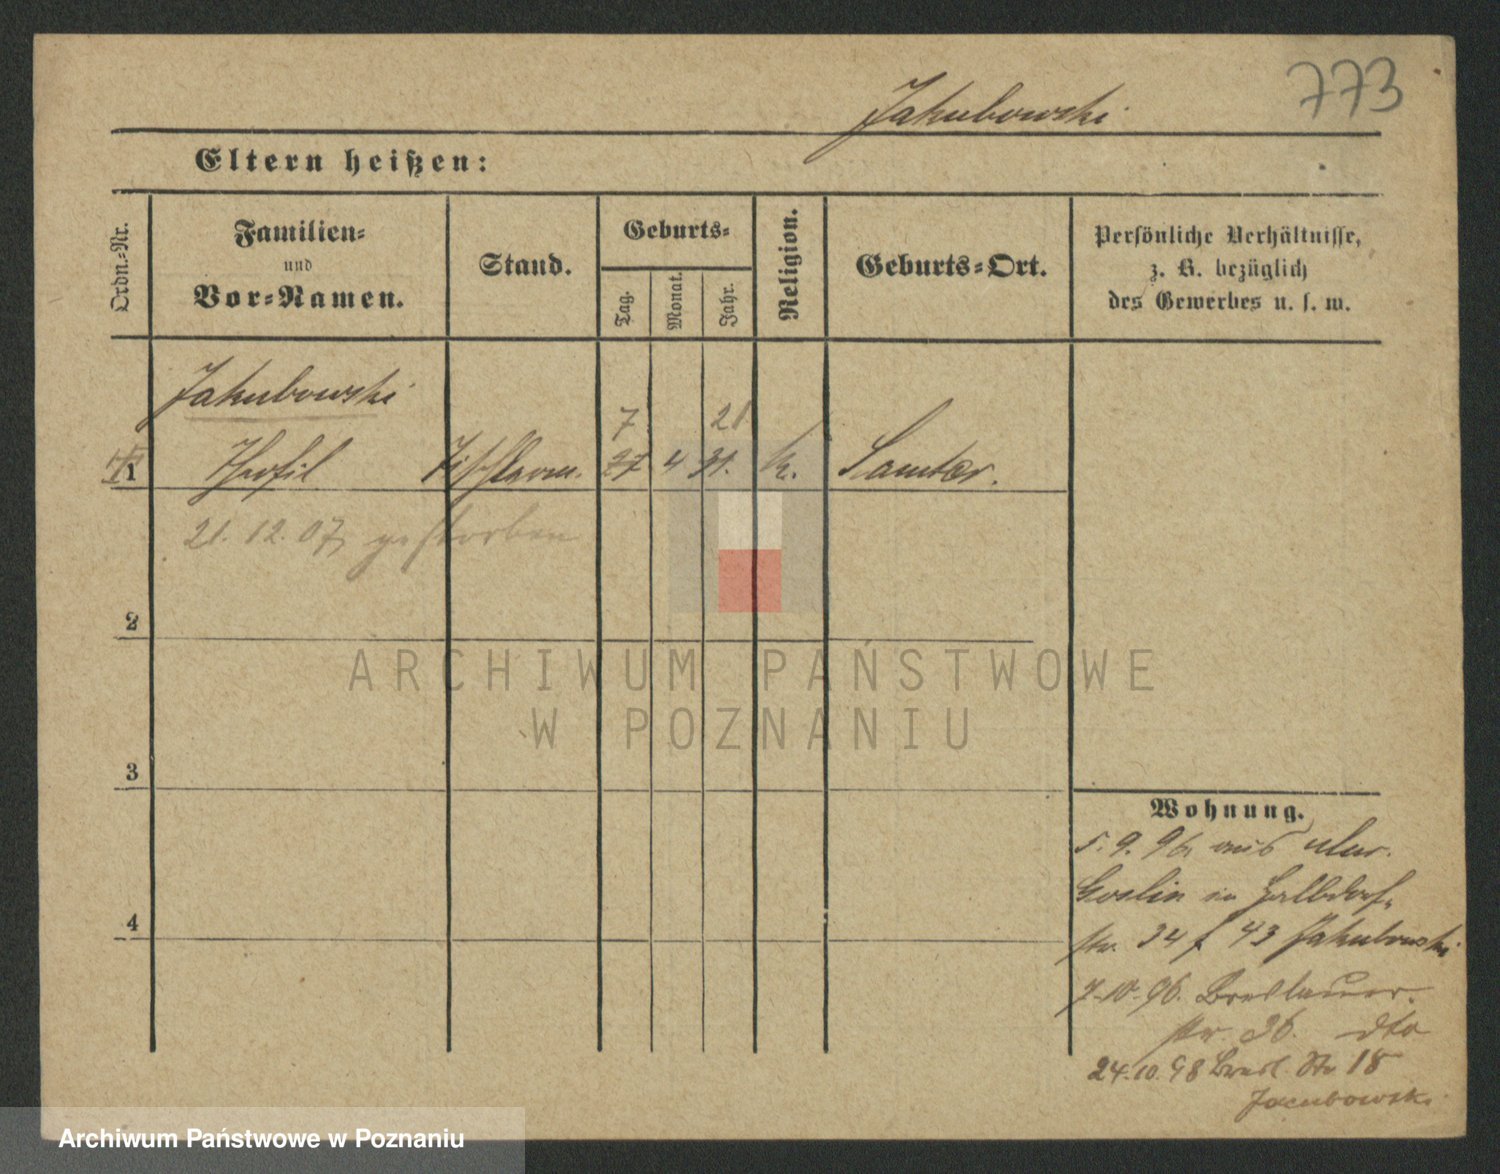 773
Jakubowski
Eltern heißen:
Ordn.-Nr.
Familien-
und
Vor-Namen.
Stand.
Geburts-
Tag.
Monat.
Jahr.
Religion.
Geburts-Ort.
Persönliche Verhältnisse,
z. B. bezüglich
des Gewerbes u. s. w.
Jakubowski
7 21
1 Theofil 27 4 31. k. Samter.
21. 12. 07 gestorben
2
3
4
ARCHIWUM PAŃSTWOWE
W POZNANIU
Wohnung.
5. 9. 96 aus Mur.
Goslin in Halbdorf-
str. 34 f 43 Jakubowski
7.10.96. Breslauer-
str. 36. dto
24.10.98 Bresl. Str 18
Jacubowski
Archiwum Państwowe w Poznaniu